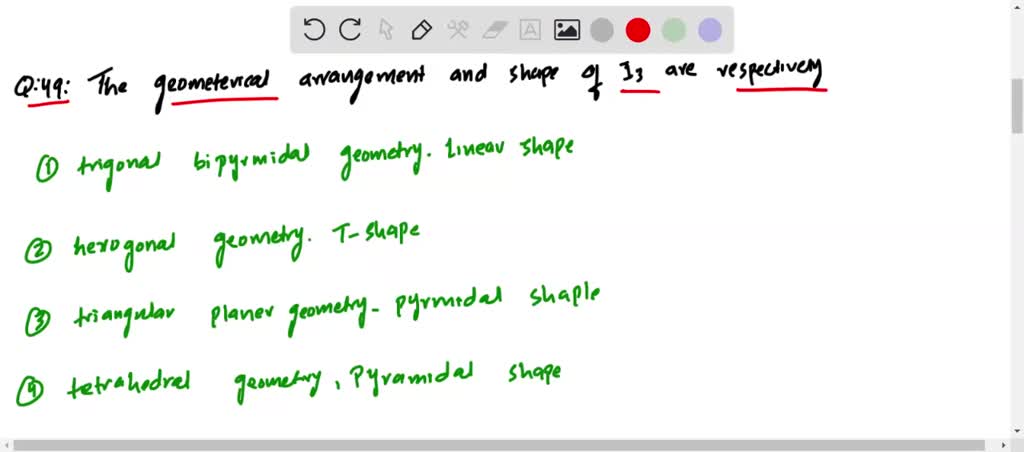 Q:49: The geometerical arrangement and shape of I3 are respectively
① trigonal bipyrmidal geometry. Linear shape
② hexogonal geometry. T-shape
③ triangular planer geometry- pyrmidal shaple
④ tetrahedral geometry, Pyramidal shape